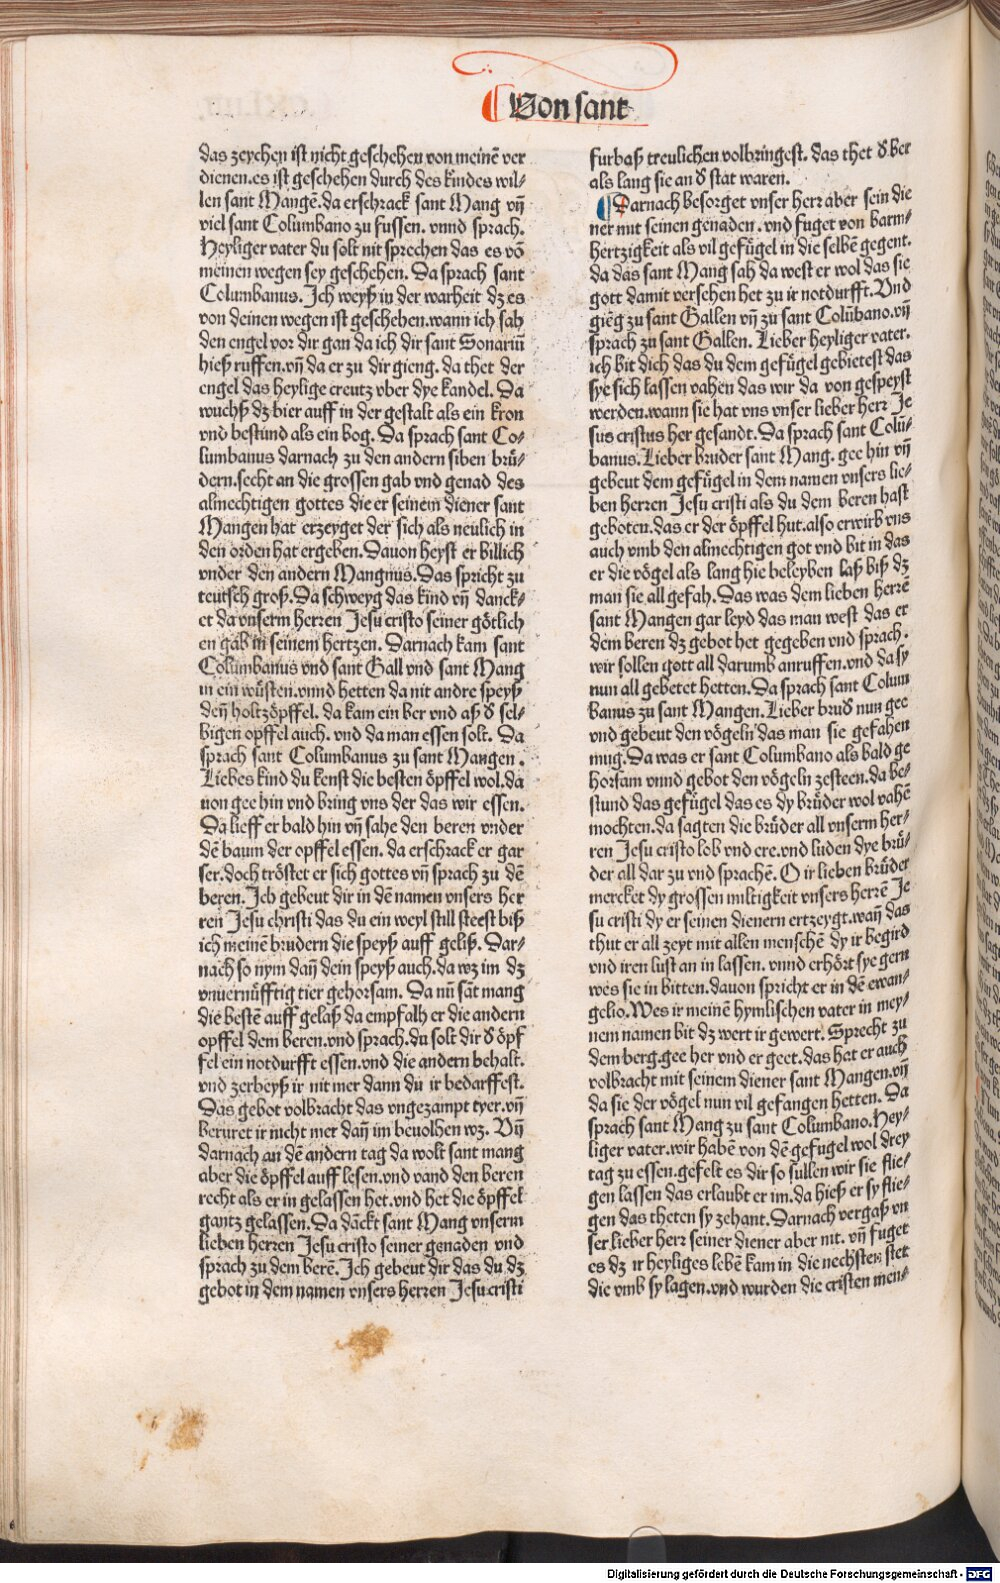 Von sant
das zeychen ist nicht geschehen von meinē ver
dienen. es ist geschehen durch des kindes wil⸗
len sant Mangē. da erschrack sant Mang vn̄
viel sant Columbano zu fussen. vnnd sprach.
Heyliger vater du solt nit sprechen das es vō
meinen wegen sey geschehen. Da sprach sant
Columbanus. Ich weyß in der warheit dz es
von deinen wegen ist geschehen. wann ich sah
den engel vor dir gan da ich dir sant Sonariū
hieß ruffen. vn̄ da er zu dir gieng. da thet der
engel das heylige creutz vber dye kandel. Da
wuchß dz bier auff in der gestalt als ein kron
vnd bestund als ein bog. Da sprach sant Co⸗
lumbanus darnach zu den andern siben brü⸗
dern. secht an die grossen gab vnd genad des
almechtigen gottes die er seinem diener sant
Mangen hat erzeyget der sich als neulich in
den orden hat ergeben. Dauon heyst er billich
vnder den andern Mangnus. Das spricht zu
teutsch groß. Da schweyg das kind vn̄ danck⸗
et da vnserm herren Jesu cristo seiner götlich
en gab in seinem hertzen. Darnach kam sant
Columbanus vnd sant Gall vnd sant Mang
in ein wüsten. vnnd hetten da nit andre speyß
den̄ holtzöpffel. da kam ein ber vnd aß d̕ sel⸗
bigen opffel auch. vnd da man essen solt. Da
sprach sant Columbanus zu sant Mangen.
Liebes kind du kenst die besten öpffel wol. da
uon gee hin vnd bring vns der das wir essen.
Da lieff er bald hin vn̄ sahe den beren vnder
dē baum der opffel essen. da erschrack er gar
ser. doch tröstet er sich gottes vn̄ sprach zu dē
beren. Ich gebeut dir in dē namen vnsers her
ren Jesu christi das du ein weyl still steest biß
ich meinē brudern die speyß auff geliß. Dar⸗
nach so nym dan̄ dein speyß auch. da wz im dz
vnuernüfftig tier gehorsam. Da nū sāt mang
die bestē auff gelaß da empfalh er die andern
opffel dem beren. vnd sprach. du solt dir d̕ öpf
fel ein notdurfft essen. vnd die andern behalt.
vnd zerbeyß ir nit mer dann du ir bedarffest.
Das gebot volbracht das vngezampt tyer. vn̄
beruret ir nicht mer dan̄ im beuolhen wz. Vn̄
darnach an dē andern tag da wolt sant mang
aber die öpffel auff lesen. vnd vand den beren
recht als er in gelassen het. vnd het die öpffel
gantz gelassen. Da dāckt sant Mang vnserm
lieben herren Jesu cristo seiner genaden vnd
sprach zu dem berē. Ich gebeut dir das du dz
gebot in dem namen vnsers herren Jesu cristi
furbaß treulichen volbringest. das thet d̕ ber
als lang sie an d̕ stat waren.
Darnach besorget vnser herr aber sein die
ner mit seinen genaden. vnd fuget von barm⸗
hertzigkeit als vil gefügel in die selbē gegent.
da das sant Mang sah da west er wol das sie
gott damit versehen het zu ir notdurfft. Vnd
giēg zu sant Gallen vn̄ zu sant Colūbano. vn̄
sprach zu sant Gallen. Lieber heyliger vater.
ich bit dich das du dem gefügel gebietest das
sye sich lassen vahen das wir da von gespeyst
werden. wann sie hat vns vnser lieber herr Je
sus cristus her gesandt. Da sprach sant Colū⸗
banus. Lieber bruder sant Mang. gee hin vn̄
gebeut dem gefügel in dem namen vnsers lie⸗
ben herren Jesu cristi als du dem beren hast
geboten. das er der öpffel hut. also erwirb vns
auch vmb den almechtigen got vnd bit in das
er die vögel als lang hie beleyben laß biß dz
man sie all gefah. Das was dem lieben herrē
sant Mangen gar leyd das man west das er
dem beren dz gebot het gegeben vnd sprach.
wir sollen gott all darumb anruffen. vnd da sy
nun all gebetet hetten. Da sprach sant Colum
banus zu sant Mangen. Lieber brud̕ nun gee
vnd gebeut den vögeln das man sie gefahen
mug. Da was er sant Columbano als bald ge
horsam vnnd gebot den vögeln zesteen. da be⸗
stund das gefügel das es dy brüder wol vahē
mochten. da sagten die brüder all vnserm her⸗
ren Jesu cristo lob vnd ere. vnd luden dye brü⸗
der all dar zu vnd sprachē. O ir lieben brüder
mercket dy grossen miltigkeit vnsers herrē Je
su cristi dy er seinen dienern ertzeygt. wan̄ das
thut er all zeyt mit allen menschē dy ir begird
vnd iren lust an in lassen. vnnd erhört sye gern
wes sie in bitten. dauon spricht er in dē ewan⸗
gelio. Wes ir meinē hymlischen vater in mey⸗
nem namen bit dz wert ir gewert. Sprecht zu
dem berg. gee her vnd er geet. das hat er auch
volbracht mit seinem diener sant Mangen. vn̄
da sie der vögel nun vil gefangen hetten. Da
sprach sant Mang zu sant Columbano. Hey⸗
liger vater. wir habē von dē gefugel wol drey
tag zu essen. gefelt es dir so sullen wir sie flie⸗
gen lassen das erlaubt er im. da hieß er sy flie⸗
gen das theten sy zehant. Darnach vergaß vn
ser lieber herr seiner diener aber nit. vn̄ fuget
es dz ir heyliges lebē kam in die nechsten stet
die vmb sy lagen. vnd wurden die cristen men⸗
Digitalisierung gefördert durch die Deutsche Forschungsgemeinschaft - DFG